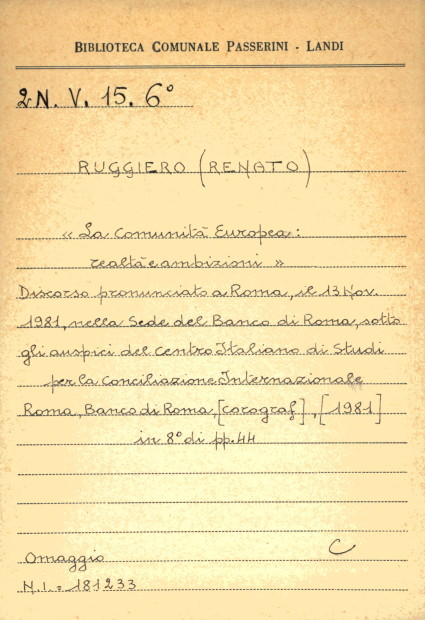 BIBLIOTECA COMUNALE PASSERINI - LANDI
2N. V. 15. 6°
RUGGIERO (RENATO)
« La Comunità Europea :
realtà e ambizioni »
Discorso pronunciato a Roma, il 13 Nov.
1981, nella Sede del Banco di Roma, sotto
gli auspici del Centro Italiano di Studi
per la Conciliazione Internazionale
Roma, Banco di Roma, [corograf.], [1981]
in 8° di pp. 44
C
Omaggio
N.I. = 181233